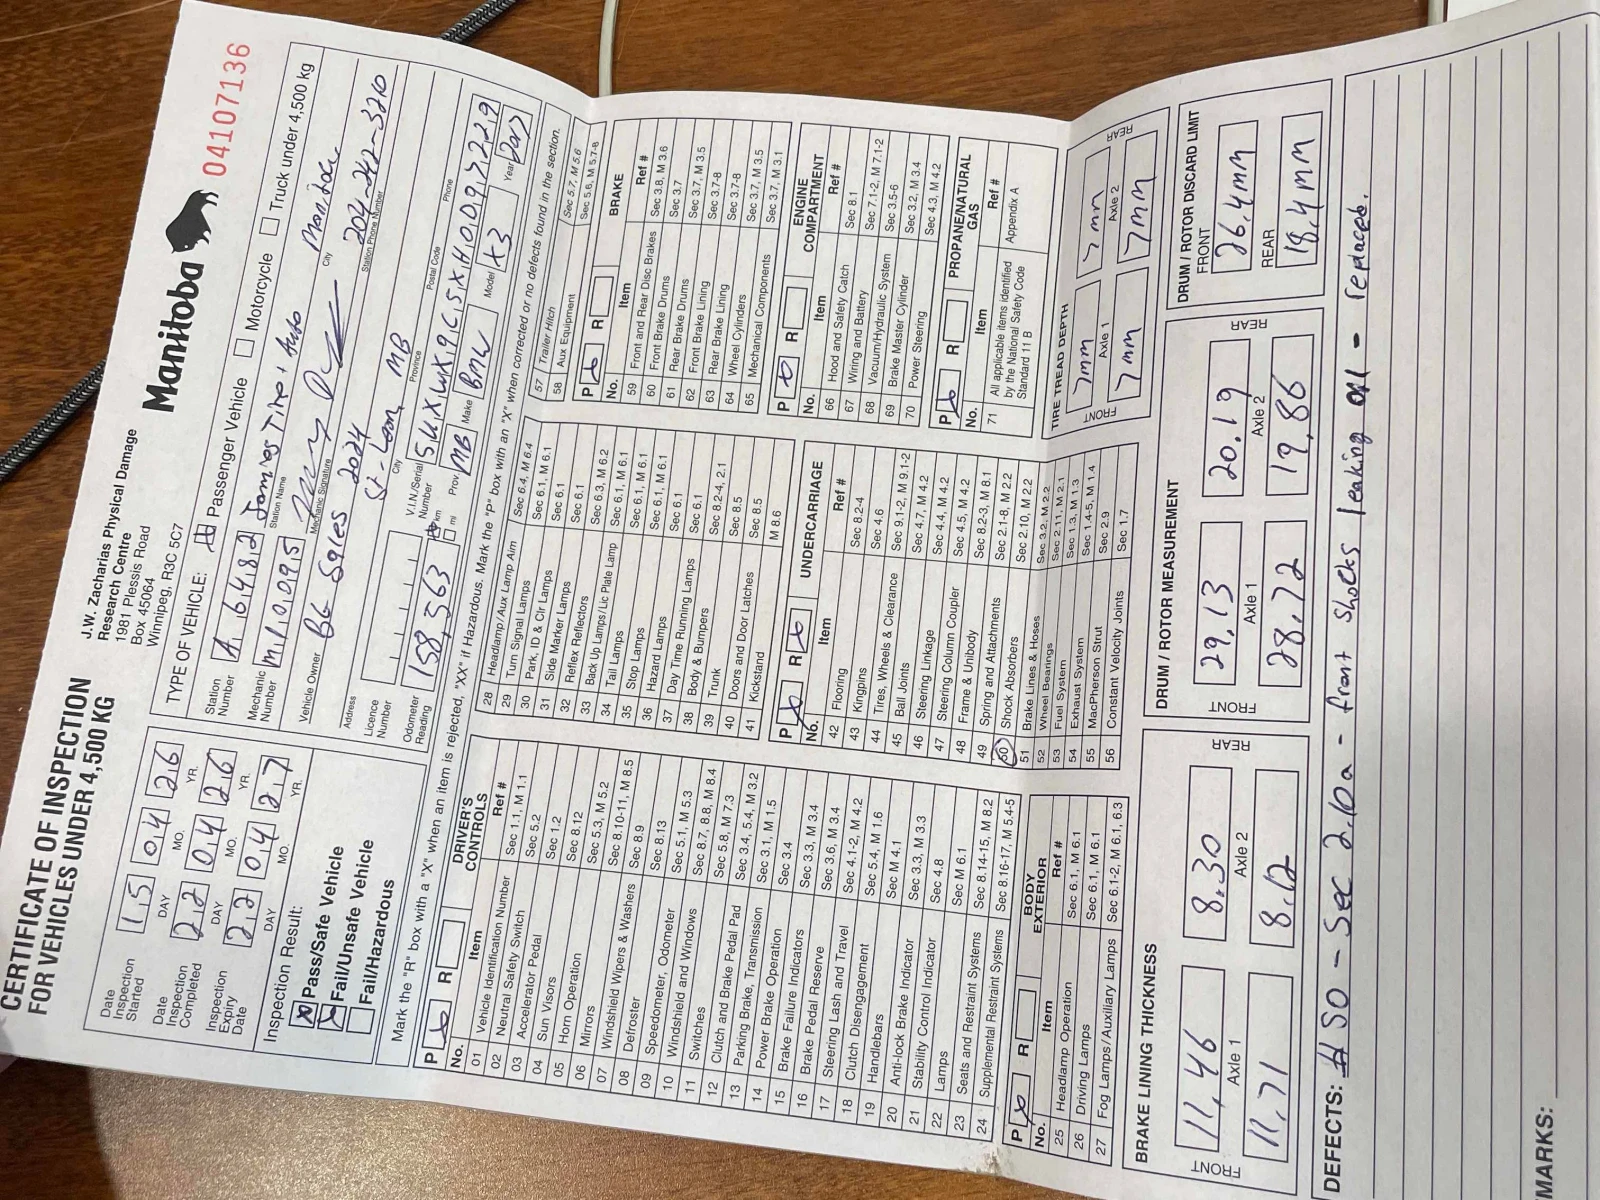 CERTIFICATE OF INSPECTION
FOR VEHICLES UNDER 4,500 KG
J.W. Zacharias Physical Damage
Research Centre
1981 Plessis Road
Box 45064
Winnipeg, R3C 5C7
Manitoba
04107136
Date Inspection Started
15 04 26
DAY MO. YR.
Date Inspection Completed
22 04 26
DAY MO. YR.
Inspection Expiry Date
22 04 27
DAY MO. YR.
Inspection Result:
Pass/Safe Vehicle
Fail/Unsafe Vehicle
Fail/Hazardous
TYPE OF VEHICLE: Passenger Vehicle Motorcycle Truck under 4,500 kg
Station Number
Station Name Tire + Auto
City Manitou
Mechanic Number
Mechanic Signature
Station Phone Number 204-242-3210
Vehicle Owner BG Sales 2024
Phone
Address St-Leon MB
City Province Postal Code
Licence Number
V.I.N./Serial Number 5UXWX9C5XH0D97229
Odometer Reading 158,563 km mi
Prov MB Make BMW Model X3 Year 2017
Mark the "R" box with a "X" when an item is rejected, "XX" if Hazardous. Mark the "P" box with an "X" when corrected or no defects found in the section.
P R DRIVER'S CONTROLS
No. Item Ref #
01 Vehicle Identification Number Sec 1.1, M 1.1
02 Neutral Safety Switch Sec 5.2
03 Accelerator Pedal Sec 1.2
04 Sun Visors Sec 8.12
05 Horn Operation Sec 5.3, M 5.2
06 Mirrors Sec 8.10-11, M 8.5
07 Windshield Wipers & Washers Sec 8.9
08 Defroster Sec 8.13
09 Speedometer, Odometer Sec 5.1, M 5.3
10 Windshield and Windows Sec 8.7, 8.8, M 8.4
11 Switches Sec 5.8, M 7.3
12 Clutch and Brake Pedal Pad Sec 3.4, 5.4, M 3.2
13 Parking Brake, Transmission Sec 3.1, M 1.5
14 Power Brake Operation Sec 3.4
15 Brake Failure Indicators Sec 3.3, M 3.4
16 Brake Pedal Reserve Sec 3.6, M 3.4
17 Steering Lash and Travel Sec 4.1-2, M 4.2
18 Clutch Disengagement Sec 5.4, M 1.6
19 Handlebars Sec M 4.1
20 Anti-lock Brake Indicator Sec 3.3, M 3.3
21 Stability Control Indicator Sec 4.8
22 Lamps Sec M 6.1
23 Seats and Restraint Systems Sec 8.14-15, M 8.2
24 Supplemental Restraint Systems Sec 8.16-17, M 5.4-5
P R BODY EXTERIOR
No. Item Ref #
25 Headlamp Operation Sec 6.1, M 6.1
26 Driving Lamps Sec 6.1, M 6.1
27 Fog Lamps/Auxiliary Lamps Sec 6.1-2, M 6.1, 6.3
28 Headlamp/Aux Lamp Aim Sec 6.4, M 6.4
29 Turn Signal Lamps Sec 6.1, M 6.1
30 Park, ID & Clr Lamps Sec 6.1
31 Side Marker Lamps Sec 6.3, M 6.2
32 Reflex Reflectors Sec 6.1, M 6.1
33 Back Up Lamps Sec 6.1, M 6.1
34 Tail Lamps/Lic Plate Lamp Sec 6.1, M 6.1
35 Stop Lamps Sec 6.1
36 Hazard Lamps Sec 6.1
37 Day Time Running Lamps
38 Body & Bumpers Sec 8.2-4, 2.1
39 Trunk Sec 8.5
40 Doors and Door Latches Sec 8.5
41 Kickstand M 8.6
P R UNDERCARRIAGE
No. Item Ref #
42 Flooring Sec 8.2-4
43 Kingpins Sec 4.6
44 Tires, Wheels & Clearance Sec 9.1-2, M 9.1-2
45 Ball Joints Sec 4.7, M 4.2
46 Steering Linkage Sec 4.4, M 4.2
47 Steering Column Coupler Sec 4.5, M 4.2
48 Frame & Unibody Sec 8.2-3, M 8.1
49 Spring and Attachments Sec 2.1-8, M 2.2
50 Shock Absorbers Sec 2.10, M 2.2
51 Brake Lines & Hoses Sec 3.2, M 2.2
52 Wheel Bearings Sec 2.11, M 2.1
53 Fuel System Sec 1.3, M 1.3
54 Exhaust System Sec 1.4-5, M 1.4
55 MacPherson Strut Sec 2.9
56 Constant Velocity Joints Sec 1.7
57 Trailer Hitch Sec 5.7, M 5.6
58 Aux Equipment Sec 5.6, M 5.7-8
P R BRAKE
No. Item Ref #
59 Front and Rear Disc Brakes Sec 3.8, M 3.6
60 Front Brake Drums Sec 3.7
61 Rear Brake Drums Sec 3.7, M 3.5
62 Front Brake Lining Sec 3.7-8
63 Rear Brake Lining Sec 3.7-8
64 Wheel Cylinders Sec 3.7, M 3.5
65 Mechanical Components Sec 3.7, M 3.1
P R ENGINE COMPARTMENT
No. Item Ref #
66 Hood and Safety Catch Sec 8.1
67 Wiring and Battery Sec 7.1-2, M 7.1-2
68 Vacuum/Hydraulic System Sec 3.5-6
69 Brake Master Cylinder Sec 3.2, M 3.4
70 Power Steering Sec 4.3, M 4.2
P R PROPANE/NATURAL GAS
No. Item Ref #
71 All applicable items identified by the National Safety Code Standard 11 B Appendix A
TIRE TREAD DEPTH
FRONT 7mm Axle 1 7mm
REAR 7mm Axle 2 7mm
BRAKE LINING THICKNESS
FRONT 11.46 Axle 1 11.71
REAR 8.30 Axle 2 8.12
DRUM / ROTOR MEASUREMENT
FRONT 29.13 Axle 1 28.72
REAR 20.19 Axle 2 19.86
DRUM / ROTOR DISCARD LIMIT
FRONT 26.4mm
REAR 18.4mm
DEFECTS: #50 - Sec 2.10a - front shocks leaking oil - replaced.
MARKS: